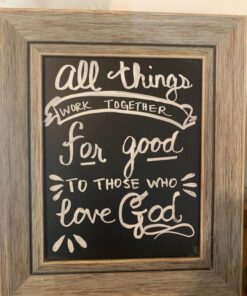 all things
WORK TOGETHER
for good
TO THOSE WHO
love God